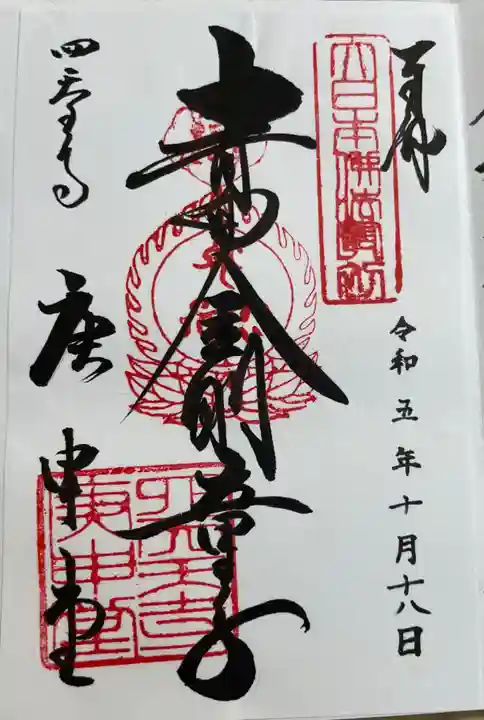 奉拝
大日本佛法最初
令和五年十月十八日
青面金剛童子
四天王寺
庚申堂
四天王寺庚申堂